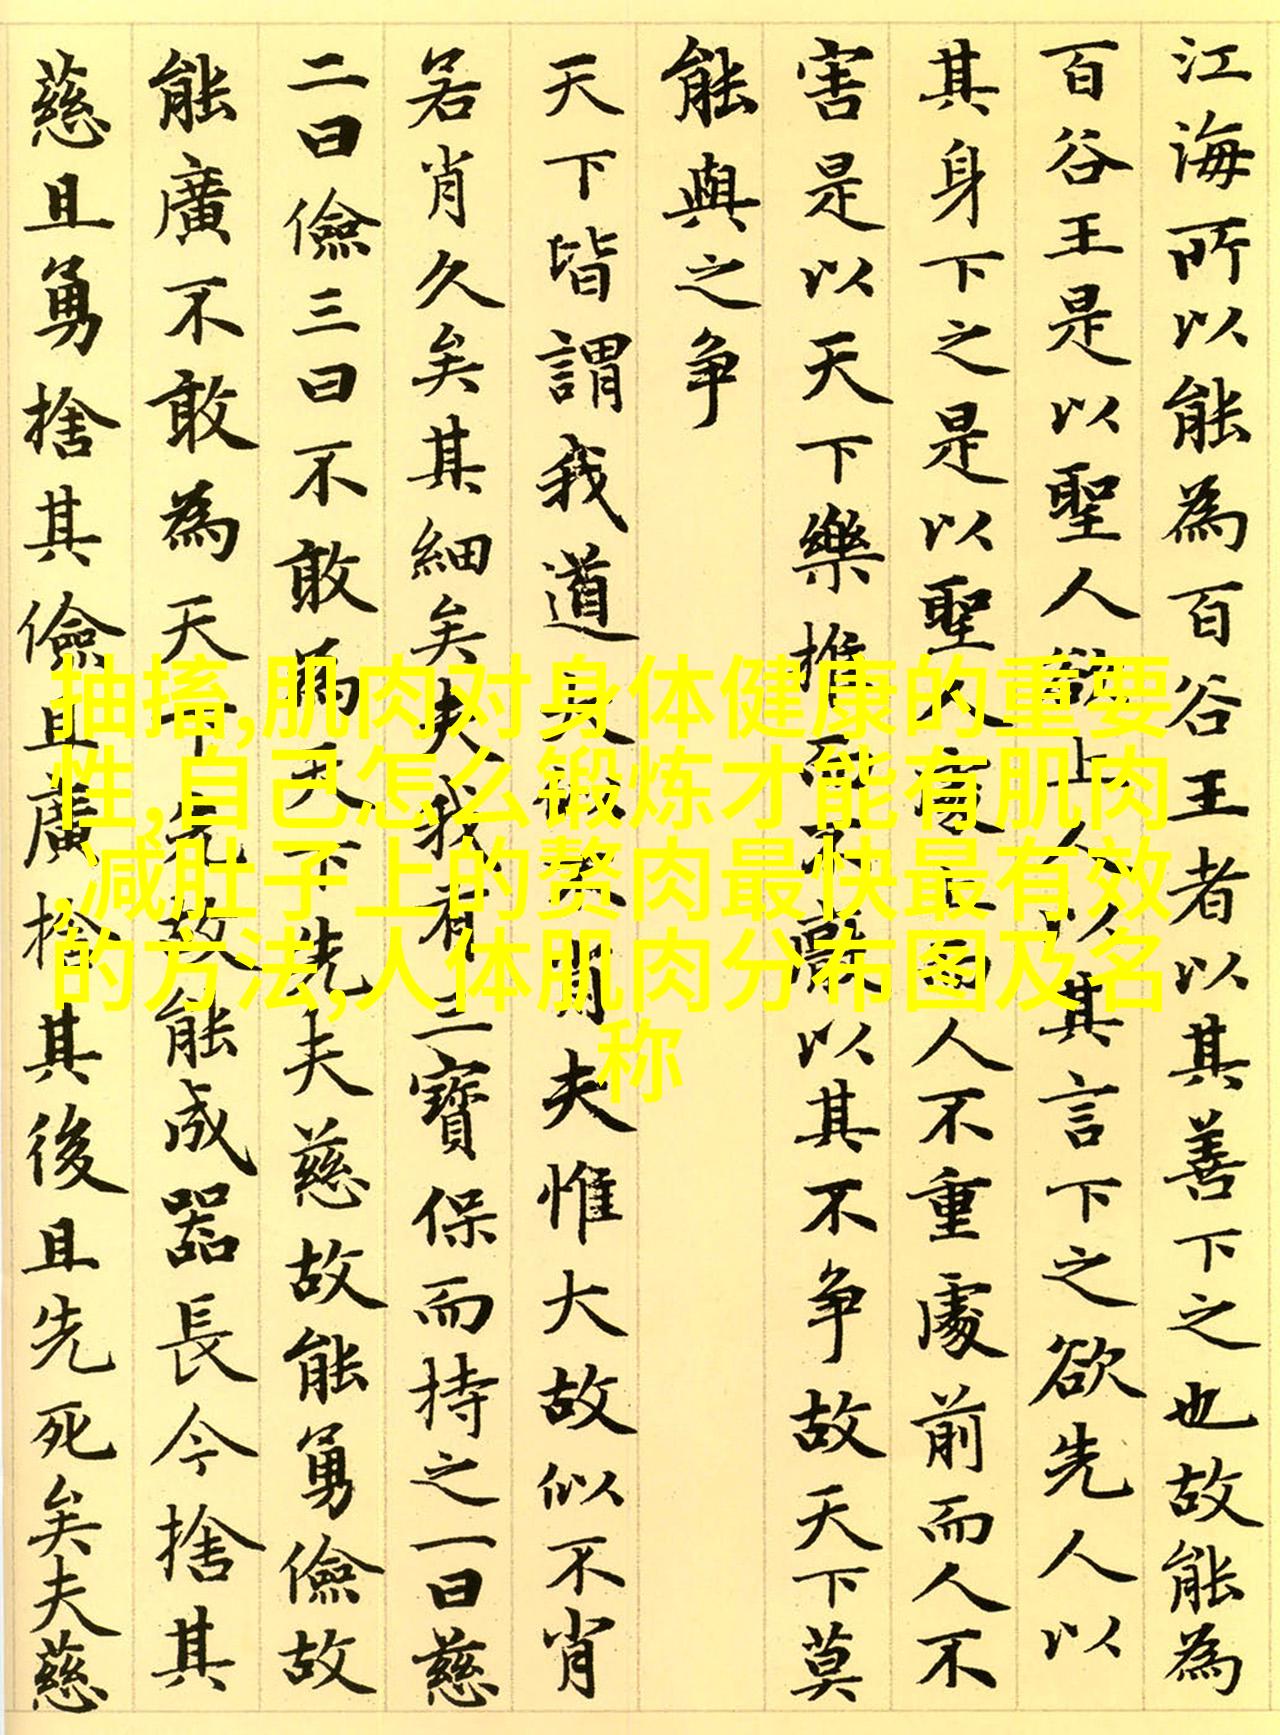 江海所以能為百谷王者以其善下之也故能為
百谷王是以聖人欲上人以其言下之欲先人以
其身下之是以聖人處上而人不重處前而人不
害是以天下樂推而不厭以其不争故天下莫
能與之争
天下皆謂我道大似不肖夫惟大故似不肖
若肖久矣其細矣夫我有三寶保而持之一曰慈
二曰儉三曰不敢為天下先夫慈故能勇儉故
能廣不敢為天下先故能成器長今捨其
慈且勇捨其儉且廣捨其後且先死矣夫慈
抽搐,肌肉对身体健康的重要
性,自己怎么锻炼才能有肌肉
,减肚子上的赘肉最快最有效
的方法,人体肌肉分布图及名
称